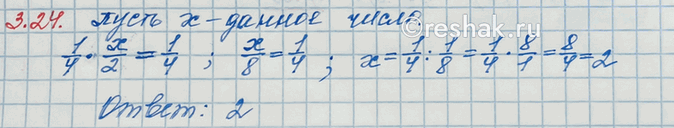 3.24. Пусть x - данное число.
1/4 · x/2 = 1/4 ; x/8 = 1/4 ; x = 1/4 : 1/8 = 1/4 · 8/1 = 8/4 = 2
Ответ: 2